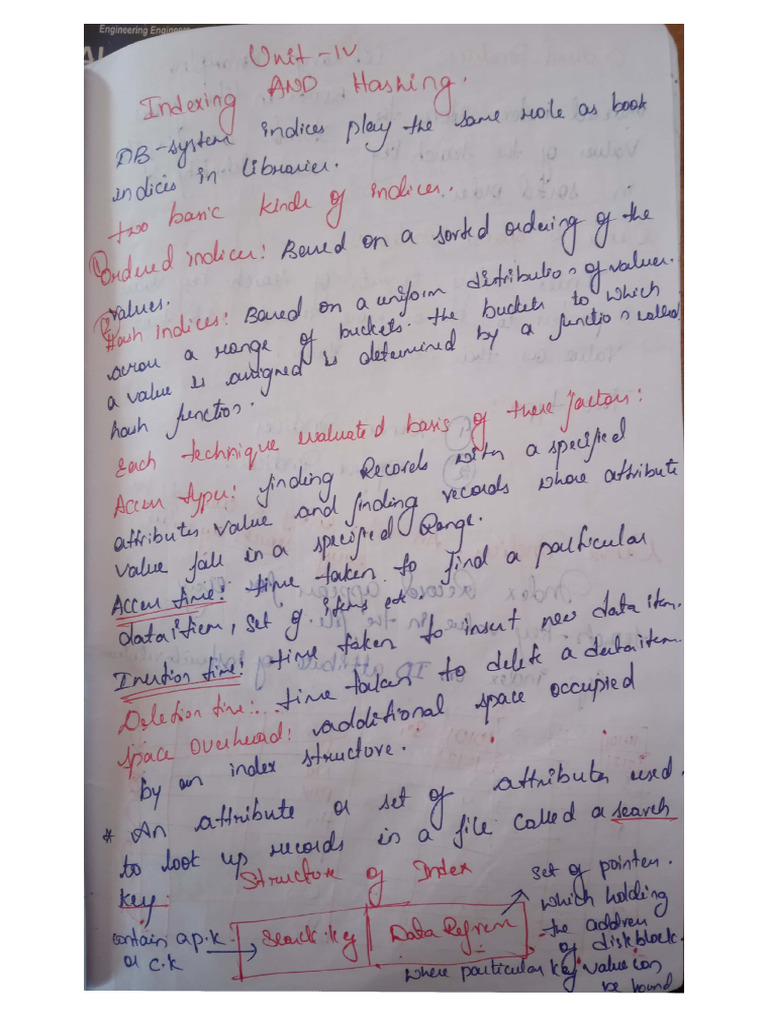 Engineering Engineers
Unit - IV
Indexing AND Hashing.
DB-system indices play the same role as book
indices in libraries.
two basic kinds of indices.
① Ordered indices: Based on a sorted ordering of the
values.
② Hash indices: Based on a uniform distribution of values.
across a range of buckets. the buckets to which
a value is assigned is determined by a function called
hash function.
Each technique evaluated basis of these factors:
Access types: finding Records with a specified
attributes value and finding records whose attribute
value fall in a specified Range.
Access time: time taken to find a particular
dataitem, set of items etc.
Insertion time: time taken to insert new data item.
Deletion time: time taken to delete a dataitem.
Space Overhead: additional space occupied
by an index structure.
* An attribute or set of attributes used
to look up records in a file called a search
key.
Structure of Index
set of pointers.
which holding
the address
of diskblock.
contain a p.k
or c.k
Search key
Data Refrem
where particular key value can
be found